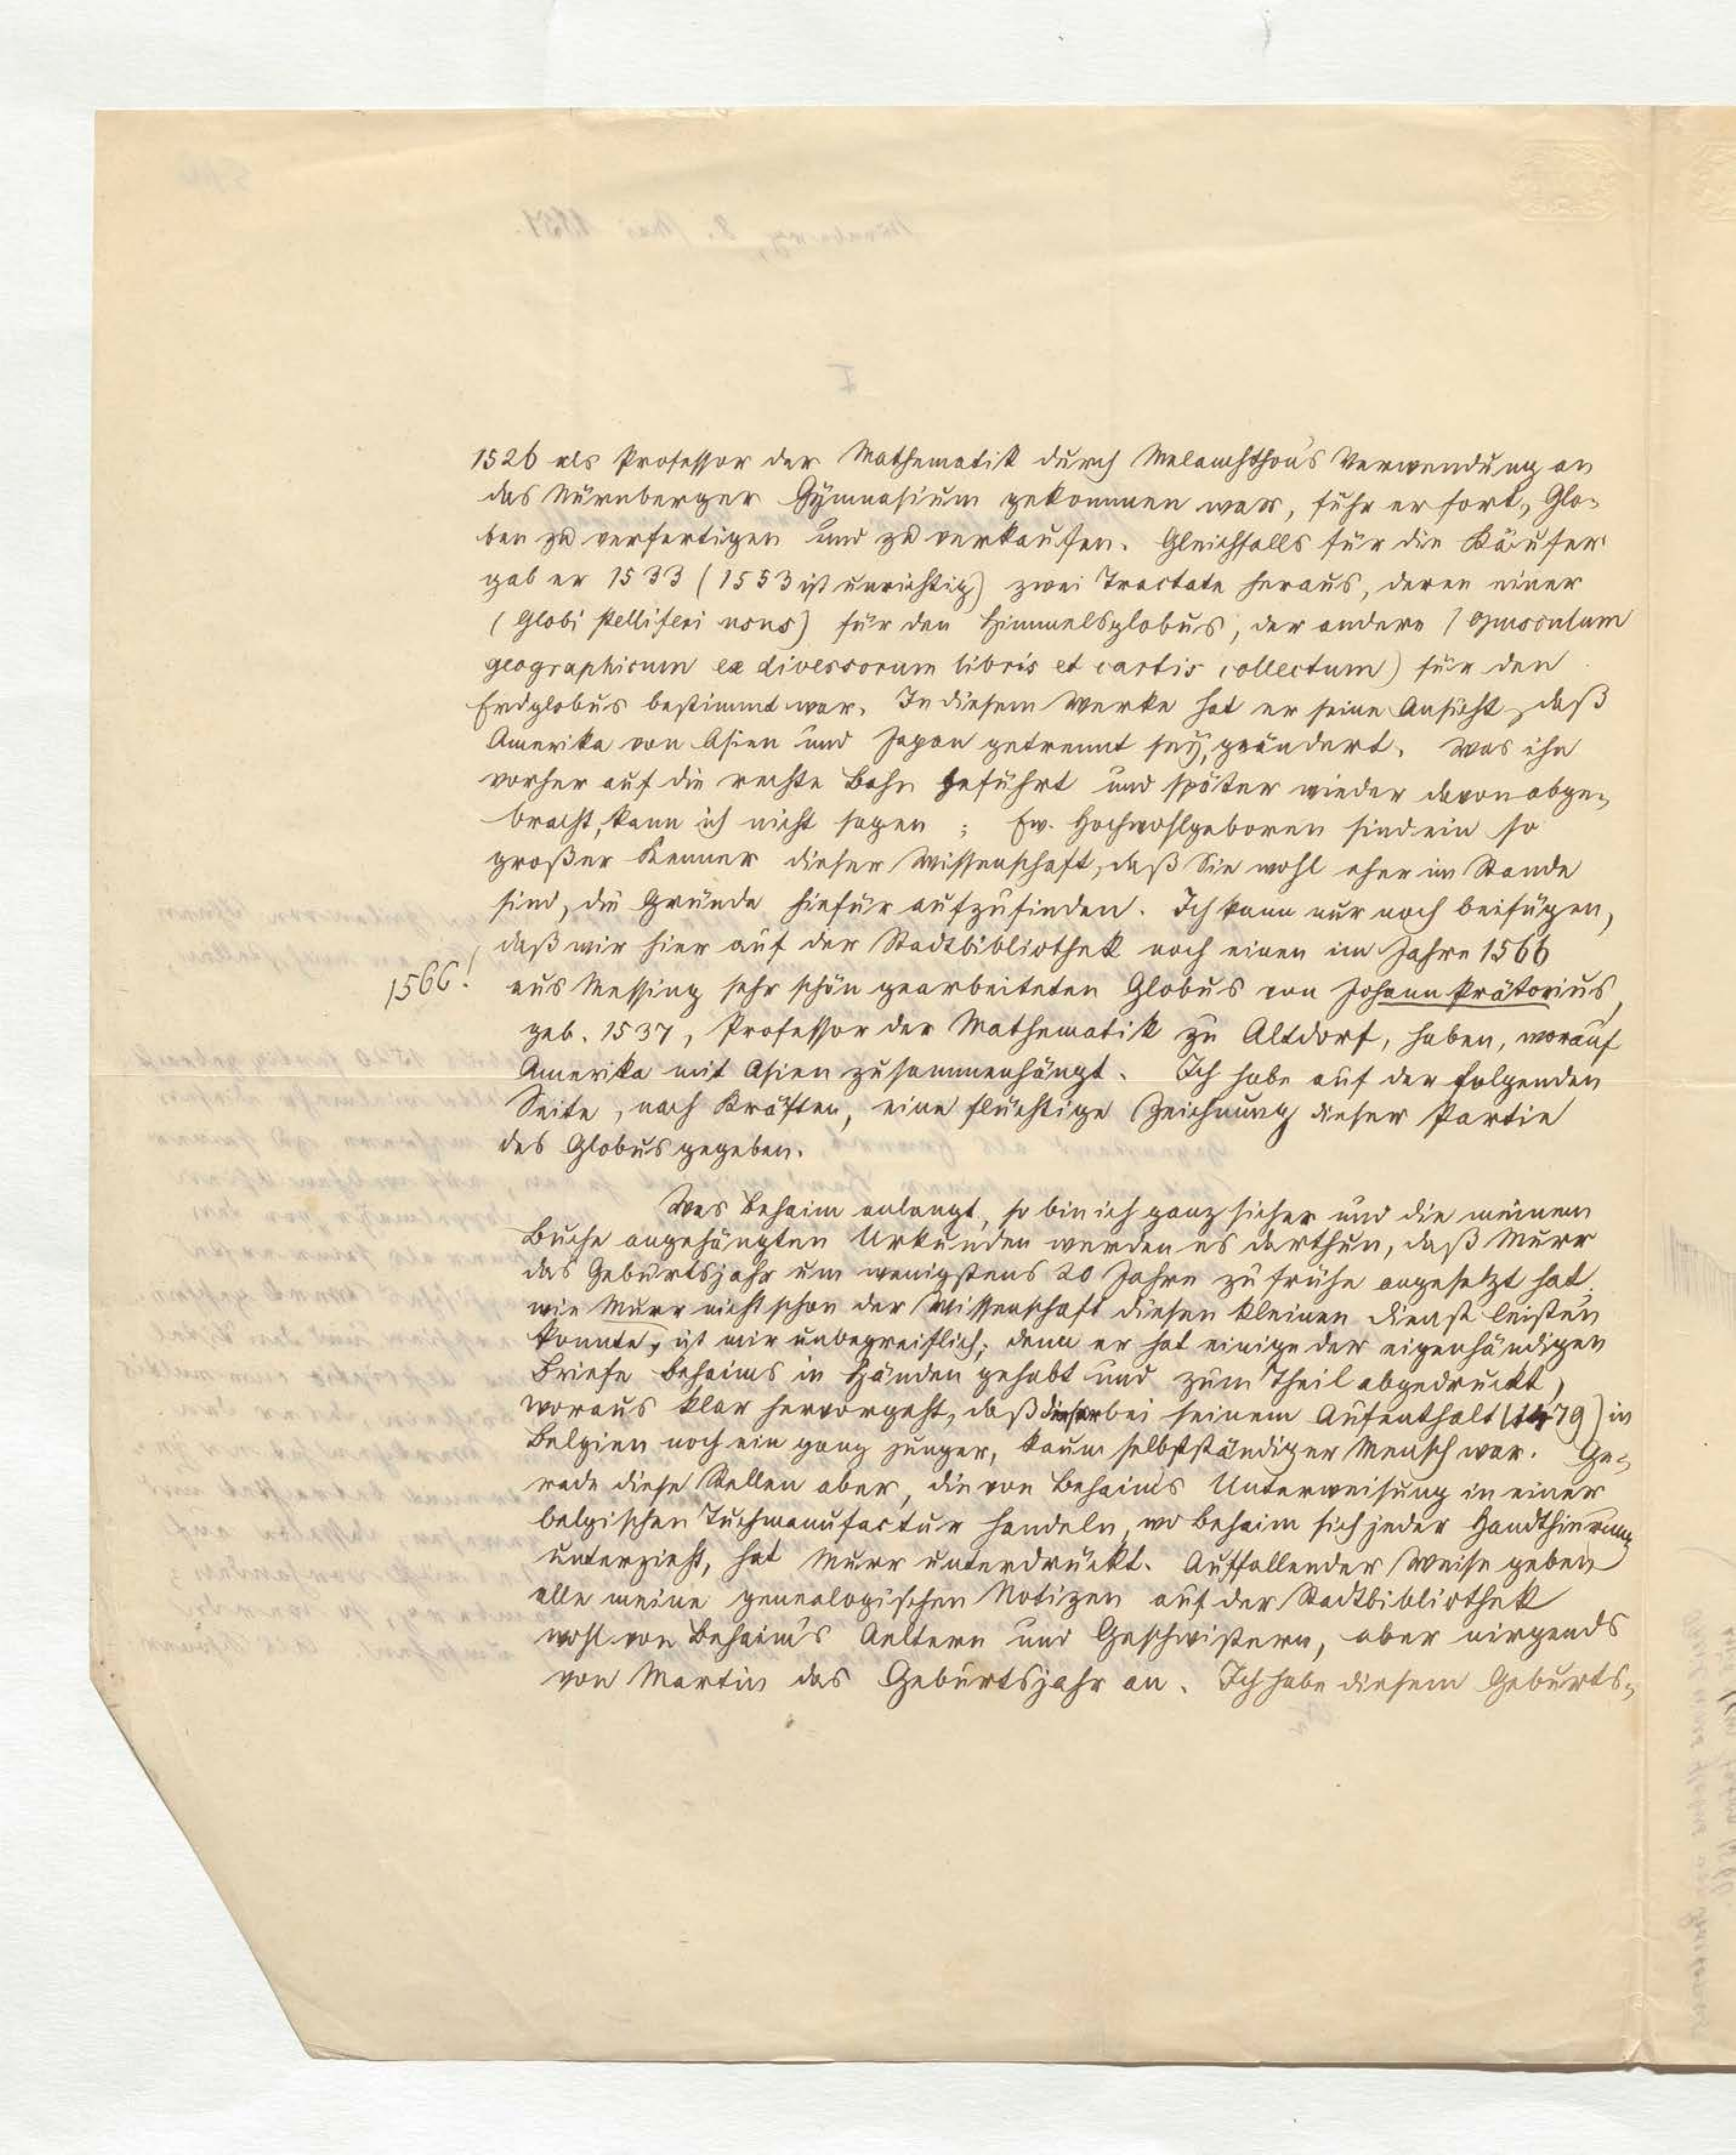 1526 als Professor der Mathematik durch Melanchthon's Verwendung an
das Nürnberger Gymnasium gekommen war, fuhr er fort, Glo-
ben zu verfertigen und zu verkaufen. Gleichfalls für die Käufer
gab er 1533 (1553 ist unrichtig) zwei Tractate heraus, deren einer
(Globi stelliferi usus) für den Himmelsglobus, der andere (opusculum
geographicum ex diversorum libris et cartis collectum) für den
Erdglobus bestimmt war. In diesem Werke hat er seine Ansicht, daß
Amerika von Asien und Japan getrennt sey, geändert. Was ihn
vorher auf die rechte Bahn geführt und später wieder davon abge-
bracht, kann ich nicht sagen; Ew. Hochwohlgeboren sind ein so
großer Kenner dieser Wissenschaft, daß Sie wohl eher im Stande
sind, die Gründe hiefür aufzufinden. Ich kann nur noch beifügen,
daß wir hier auf der Stadtbibliothek noch einen im Jahre 1566
1566!
aus Messing sehr schön gearbeiteten Globus von Johann Prätorius,
geb. 1537, Professor der Mathematik zu Altdorf, haben, worauf
Amerika mit Asien zusammenhängt. Ich habe auf der folgenden
Seite, nach Kräften, eine flüchtige Zeichnung dieser Partie
des Globus gegeben.
Was Behaim anlangt, so bin ich ganz sicher und die meinem
Buche angehängten Urkunden werden es darthun, daß Murr
das Geburtsjahr um wenigstens 20 Jahre zu frühe angesetzt hat.
wie Murr nicht schon der Wissenschaft diesen kleinen Dienst leisten
konnte, ist mir unbegreiflich; denn er hat einige der eigenhändigen
Briefe Behaims in Händen gehabt und zum Theil abgedruckt,
woraus klar hervorgeht, daß dieser bei seinem Aufenthalt (1479) in
Belgien noch ein ganz junger, kaum selbstständiger Mensch war. Ge-
rade diese Stellen aber, die von Behaim's Unterweisung in einer
belgischen Tuchmanufactur handeln, wo Behaim sich jeder Handthierung
unterzieht, hat Murr unterdrückt. Auffallender Weise geben
alle meine genealogischen Notizen auf der Stadtbibliothek
wohl von Behaim's Aeltern und Geschwistern, aber nirgends
von Martin das Geburtsjahr an. Ich habe diesem Geburts-